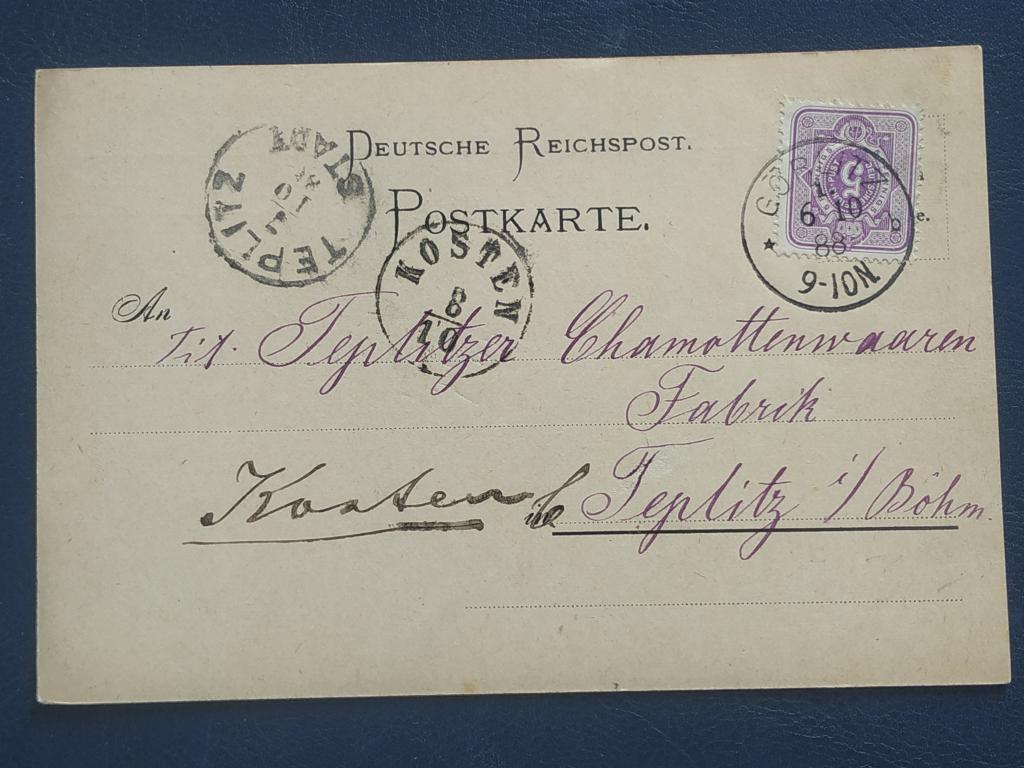 DEUTSCHE REICHSPOST.
POSTKARTE.
TEPLITZ STADT
KOSTEN
8
10
6 10
88
9-10N
b
e.
5
An
Tit. Teplitzer Chamottenwaaren
Fabrik
Kosten b/ in Teplitz i/ Böhm.